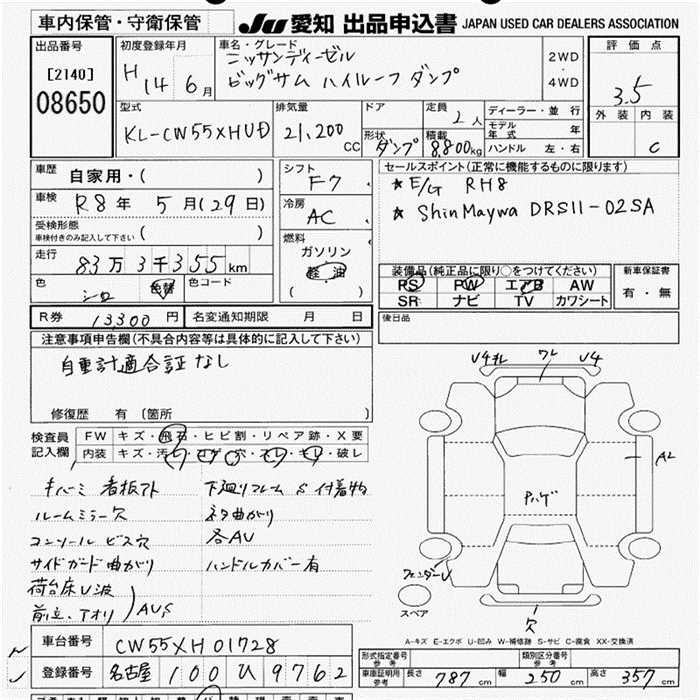 車内保管・守衛保管
JU 愛知 出品申込書 JAPAN USED CAR DEALERS ASSOCIATION
出品番号
[2140]
08650
初度登録年月
H14 6月
車名・グレード
ニッサンディーゼル
ビッグサム ハイルーフ ダンプ
2WD
・
4WD
評価点
3.5
外装 内装
C
型式
KL-CW55XHUD
排気量
21,200 CC
ドア
形状
ダンプ
定員
2人
積載
8,800kg
ディーラー・並行
モデル年式 年
ハンドル 左・右
車歴
自家用・( )
車検
R8年 5月(29日)
受検形態
車検付きのみ記入して下さい ( )
走行
83万3千355km
色
シロ
色替
色コード
シフト
F7
冷房
AC
燃料
ガソリン
軽油
( )
セールスポイント(正常に機能するものに限ります)
★ E/G RH8
★ ShinMaywa DRS11-02SA
装備品(純正品に限り○をつけてください)
PS PW エアB AW
SR ナビ TV カワシート
新車保証書
有・無
後日品
R券 13300円
名変通知期限 月 日
注意事項申告欄(不具合内容等は具体的に記入して下さい)
自重計適合証なし
修復歴 有 [箇所 ]
検査員
記入欄
FW キズ・飛石・ヒビ割・リペア跡・X要
内装 キズ・汚レ・コゲ・穴・スレ・キレ・破レ
キハーミ 看板アト
ルームミラー欠
コンソール ビス穴
サイドガード曲がり
荷台床U波
前立、アオリ
AUS
下廻りフレーム S 付着物
ネタ曲がり
各AU
ハンドルカバー有
ワレ
U4
Pハゲ
AL
フェンダーU
スペア
欠
A-キズ E-エクボ U-凹み W-補修跡 S-サビ C-腐食 XX-交換済
車台番号 CW55XH01728
登録番号 名古屋 100 ひ 9762
形式指定番号
参考
類別区分番号
参考
車庫証明用
参考
長さ 787cm
幅 250cm
高さ 357cm